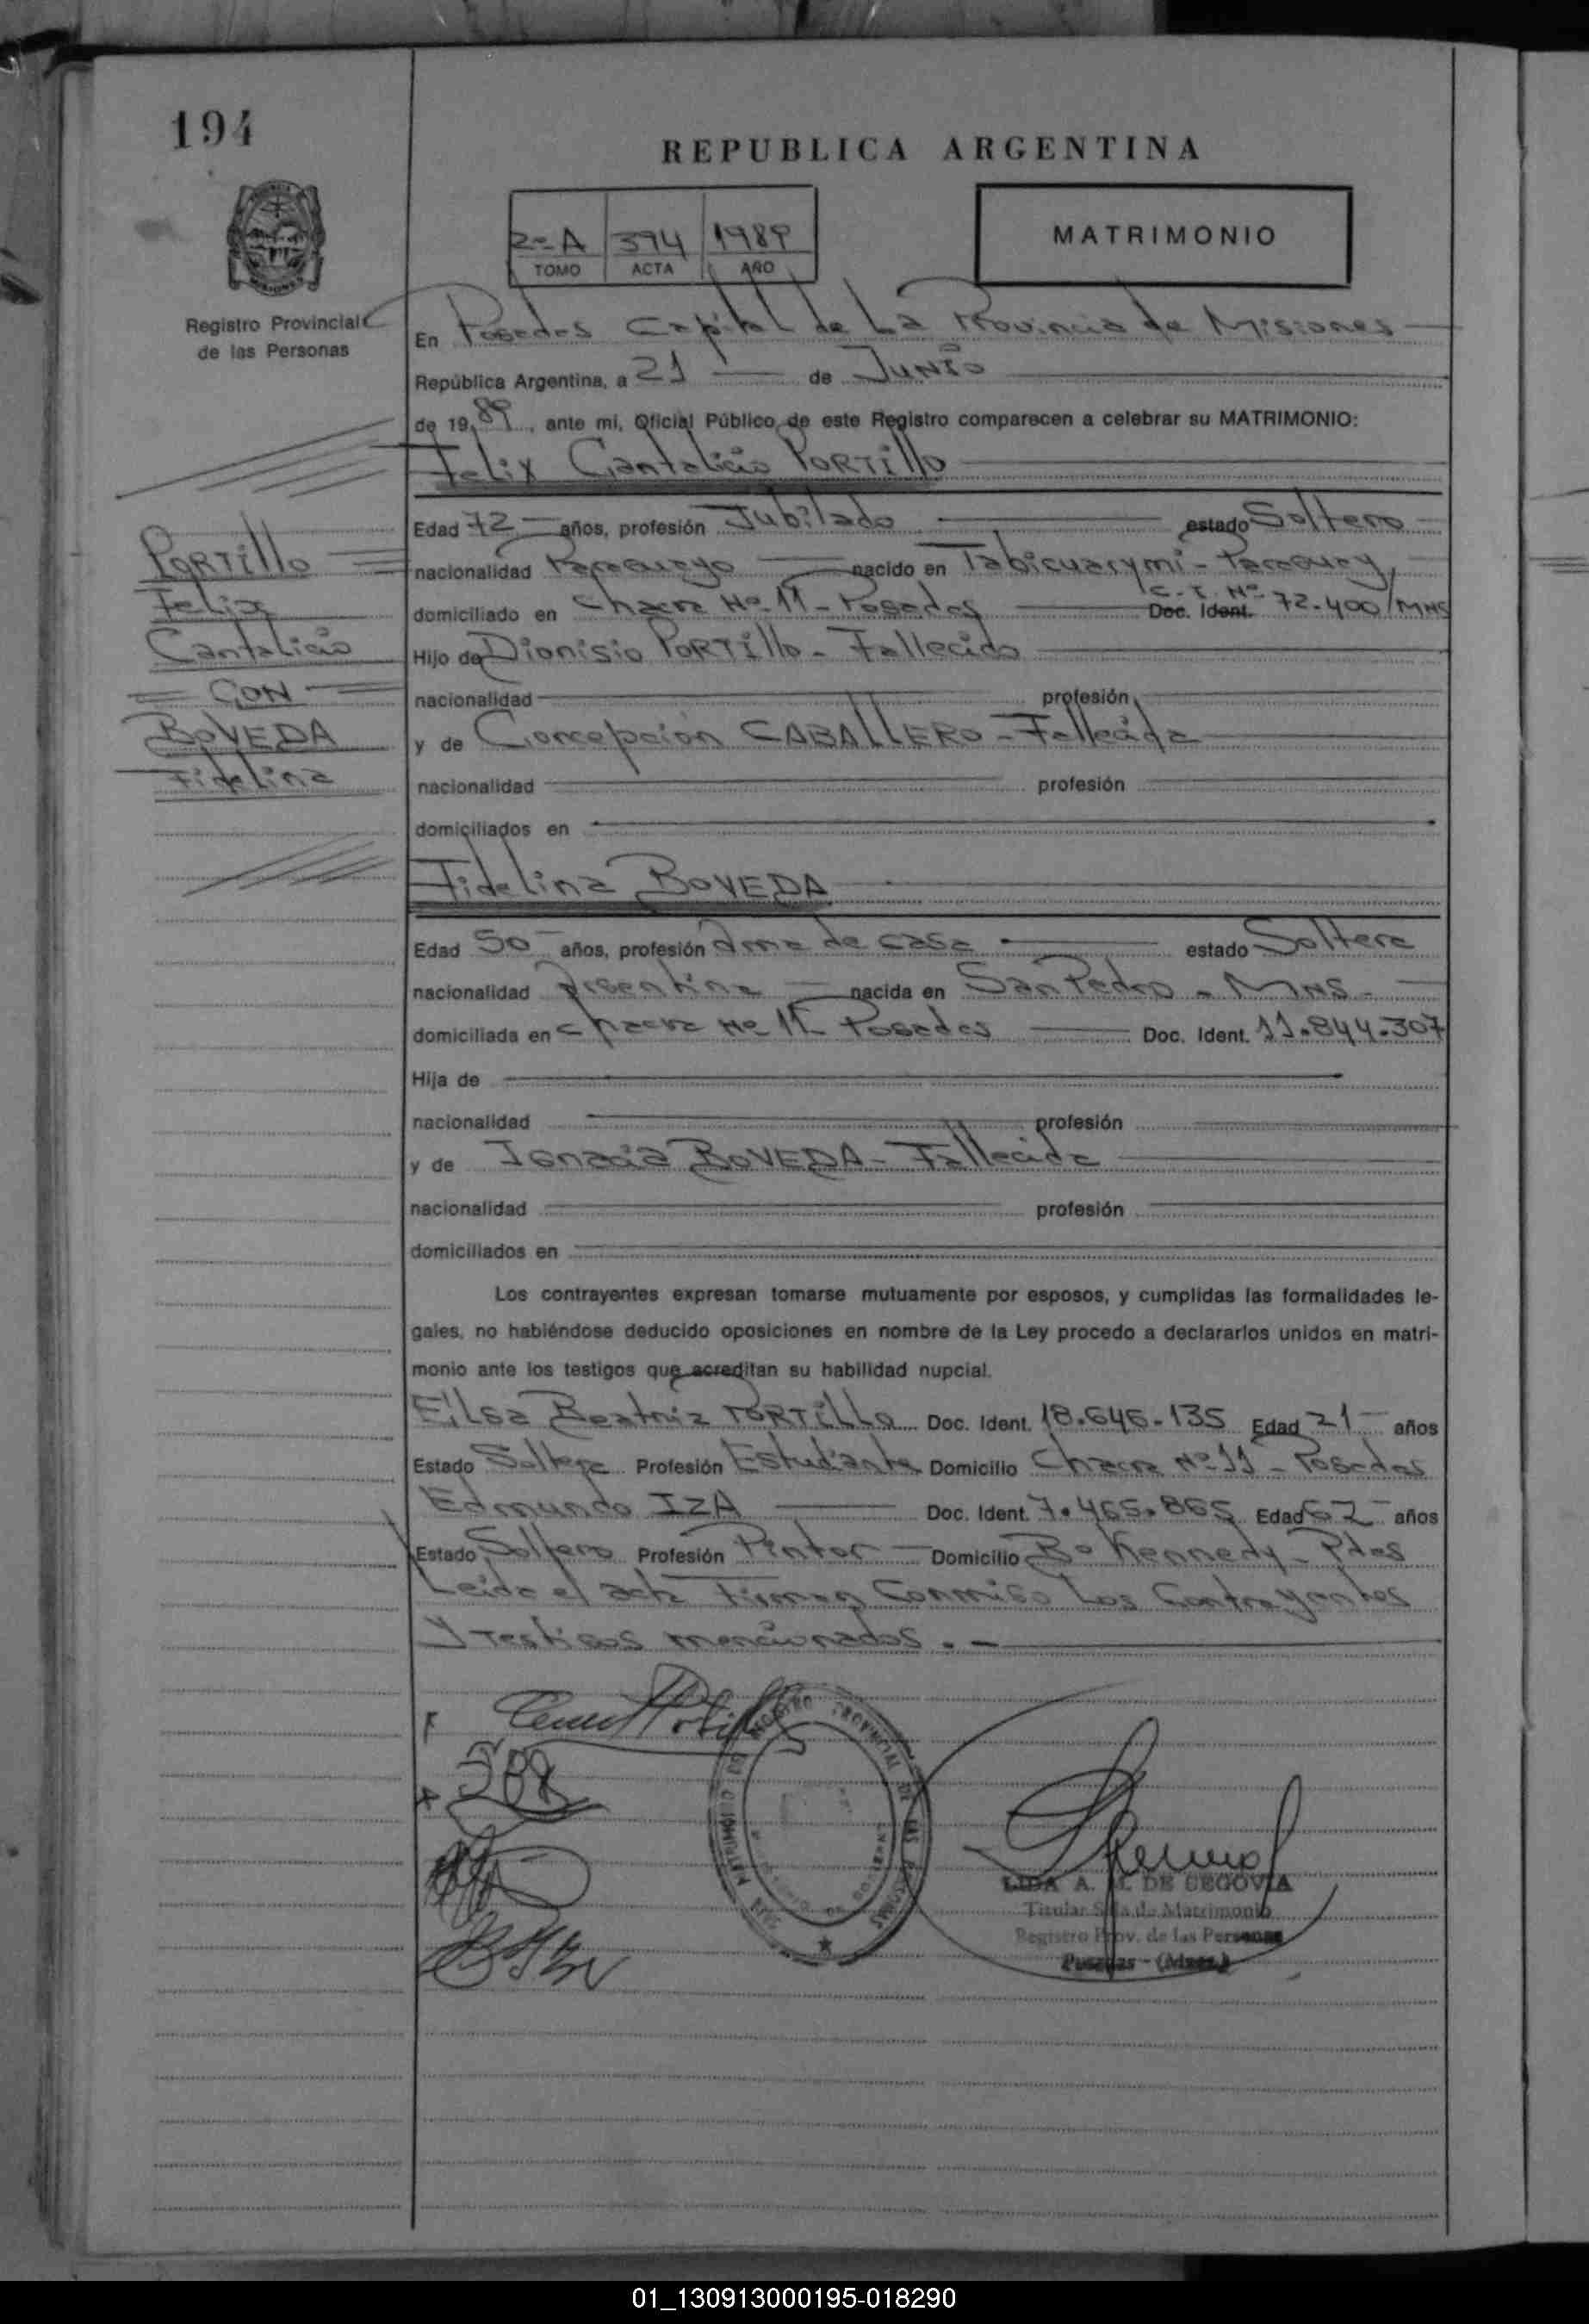 194
REPUBLICA ARGENTINA
2º A 394 1989
TOMO ACTA AÑO
MATRIMONIO
MISIONES
Registro Provincial
de las Personas
En Posadas Capital de La Provincia de Misiones
República Argentina, a 21 de JUNIO
de 1989, ante mí, Oficial Público de este Registro comparecen a celebrar su MATRIMONIO:
Felix Cantalicio PORTillo
Edad 72 años, profesión Jubilado estado Soltero
nacionalidad Paraguayo nacido en Tabicuarymi - Paraguay,
domiciliado en Chacra Nº 11 - Posadas Doc. Ident. C. I. Nº 72.400/MNS
Hijo de Dionisio PORTillo - Fallecido
nacionalidad profesión
y de Concepción CABALLERO - Fallecida
nacionalidad profesión
domiciliados en
PORTillo
Felix
Cantalicio
CON
BOVEDA
Fidelina
Fidelina BOVEDA
Edad 50 años, profesión Ama de casa estado Soltera
nacionalidad Argentina nacida en San Pedro - MNS -
domiciliada en Chacra Nº 11 - Posadas Doc. Ident. 11.844.307
Hija de
nacionalidad profesión
y de Ignacia BOVEDA - Fallecida
nacionalidad profesión
domiciliados en
Los contrayentes expresan tomarse mutuamente por esposos, y cumplidas las formalidades le-
gales, no habiéndose deducido oposiciones en nombre de la Ley procedo a declararlos unidos en matri-
monio ante los testigos que acreditan su habilidad nupcial.
Elsa Beatriz PORTillo Doc. Ident. 18.646.135 Edad 21 años
Estado Soltera Profesión Estudiante Domicilio Chacra Nº 11 - Posadas
Edmundo IZA Doc. Ident. 7.465.865 Edad 62 años
Estado Soltero Profesión Pintor Domicilio Bº Kennedy - Pdas
Leida el acta Firman Conmigo Los Contrayentes
y Testigos mencionados . -
REGISTRO PROVINCIAL DE LAS PERSONAS
LIDA A. M. DE SEGOVIA
Titular Sala de Matrimonio
Registro Prov. de las Personas
Posadas - (Mnes.)
01_130913000195-018290